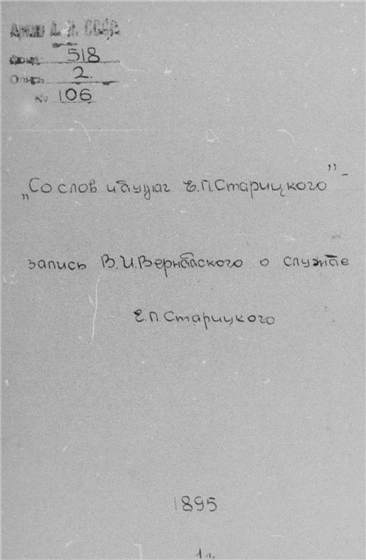 Архив А. Н. СССР.
Фонд 518
Опись 2.
№ 106
„Со слов и бумаг Е.П.Старицкого" -
запись В.И.Вернадского о службе
Е.П.Старицкого
1895
1 л.